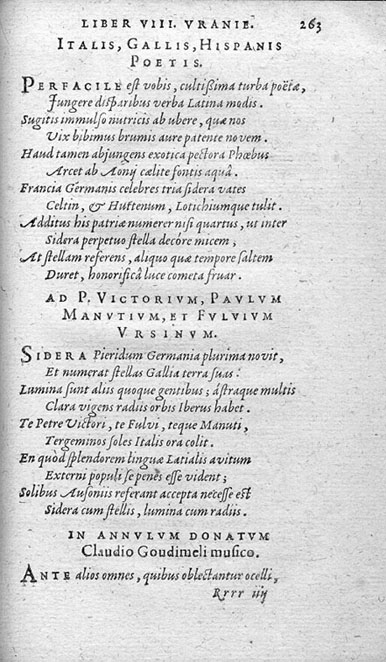 LIBER VIII. VRANIE. 263
ITALIS, GALLIS, HISPANIS
POETIS.
PERFACILE est vobis, cultißima turba poëtæ,
Jungere disparibus verba Latina modis.
Sugitis immulso nutricis ab ubere, quæ nos
Vix bibimus brumis aure patente novem.
Haud tamen abjungens exotica pectora Phœbus
Arcet ab Aonij cælite fontis aquâ.
Francia Germanis celebres tria sidera vates
Celtin, & Huttenum, Lotichiumque tulit.
Additus his patriæ numerer nisi quartus, ut inter
Sidera perpetuo stella decóre micem;
At stellam referens, aliquo quæ tempore saltem
Duret, honorificâ luce cometa fruar.
AD P. VICTORIVM, PAVLVM
MANVTIVM, ET FVLVIVM
VRSINVM.
SIDERA Pieridum Germania plurima novit,
Et numerat stellas Gallia terra suas:
Lumina sunt aliis quoque gentibus; ástraque multis
Clara vigens radiis orbis Iberus habet.
Te Petre Victori, te Fulvi, teque Manuti,
Tergeminos soles Italis ora colit.
En quòd splendorem linguæ Latialis avitum
Externi populi se penès esse vident;
Solibus Ausoniis referant accepta necesse est
Sidera cum stellis, lumina cum radiis.
IN ANNVLVM DONATVM
Claudio Goudimeli musico.
ANTE alios omnes, quibus oblectantur ocelli,
Rrrr iiij